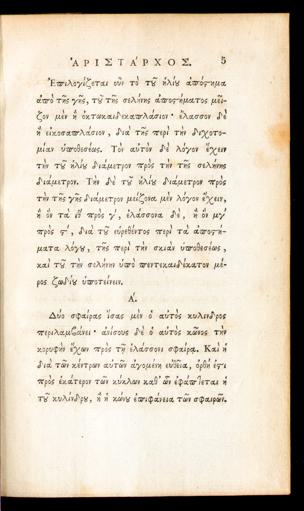 ἈΡΙΣΤΑΡΧΟΣ. 5
Ἐπιλογίζεται οὖν τὸ τοῦ ἡλίου ἀπόστημα
ἀπὸ τῆς γῆς, τοῦ τῆς σελήνης ἀποστήματος μεῖ-
ζον μὲν ἢ ὀκτωκαιδεκαπλάσιον· ἔλασσον δὲ
ἢ εἰκοσαπλάσιον, διὰ τῆς περὶ τὴν διχοτο-
μίαν ὑποθέσεως. Τὸν αὐτὸν δὲ λόγον ἔχειν
τὴν τοῦ ἡλίου διάμετρον πρὸς τὴν τῆς σελήνης
διάμετρον. Τὴν δὲ τοῦ ἡλίου διάμετρον πρὸς
τὴν τῆς γῆς διάμετρον μείζονα μὲν λόγον ἔχειν,
ἢ ὃν τὰ ιθ πρὸς γ', ἐλάσσονα δὲ, ἢ ὃν μγ'
πρὸς ϛ', διὰ τοῦ εὑρεθέντος περὶ τὰ ἀποστή-
ματα λόγου, τῆς περὶ τὴν σκιὰν ὑποθέσεως,
καὶ τοῦ τὴν σελήνην ὑπὸ πεντεκαιδέκατον μέ-
ρος ζωδίου ὑποτείνειν.
Α.
Δύο σφαίρας ἴσας μὲν ὁ αὐτὸς κύλινδρος
περιλαμβάνει· ἀνίσους δὲ ὁ αὐτὸς κῶνος τὴν
κορυφὴν ἔχων πρὸς τῇ ἐλάσσονι σφαίρᾳ. Καὶ ἡ
διὰ τῶν κέντρων αὐτῶν ἀγομένη εὐθεῖα, ὀρθή ἐστι
πρὸς ἑκάτερον τῶν κύκλων καθ' ὧν ἐφάπτεται ἡ
τοῦ κυλίνδρου, ἢ ἡ κώνου ἐπιφάνεια τῶν σφαιρῶν.